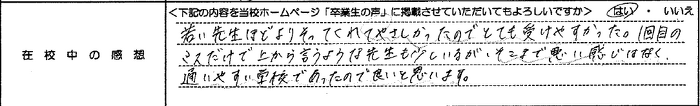 <下記の内容を当校ホームページ「卒業生の声」に掲載させていただいてもよろしいですか> はい ・ いいえ
在校中の感想
若い先生ほどよりそってくれてやさしかったのでとても受けやすかった。1回目の
ミスだけで上から言うような先生も少しいるが、そこまで悪い感じはなく、
通いやすい学校であったので良いと思います。